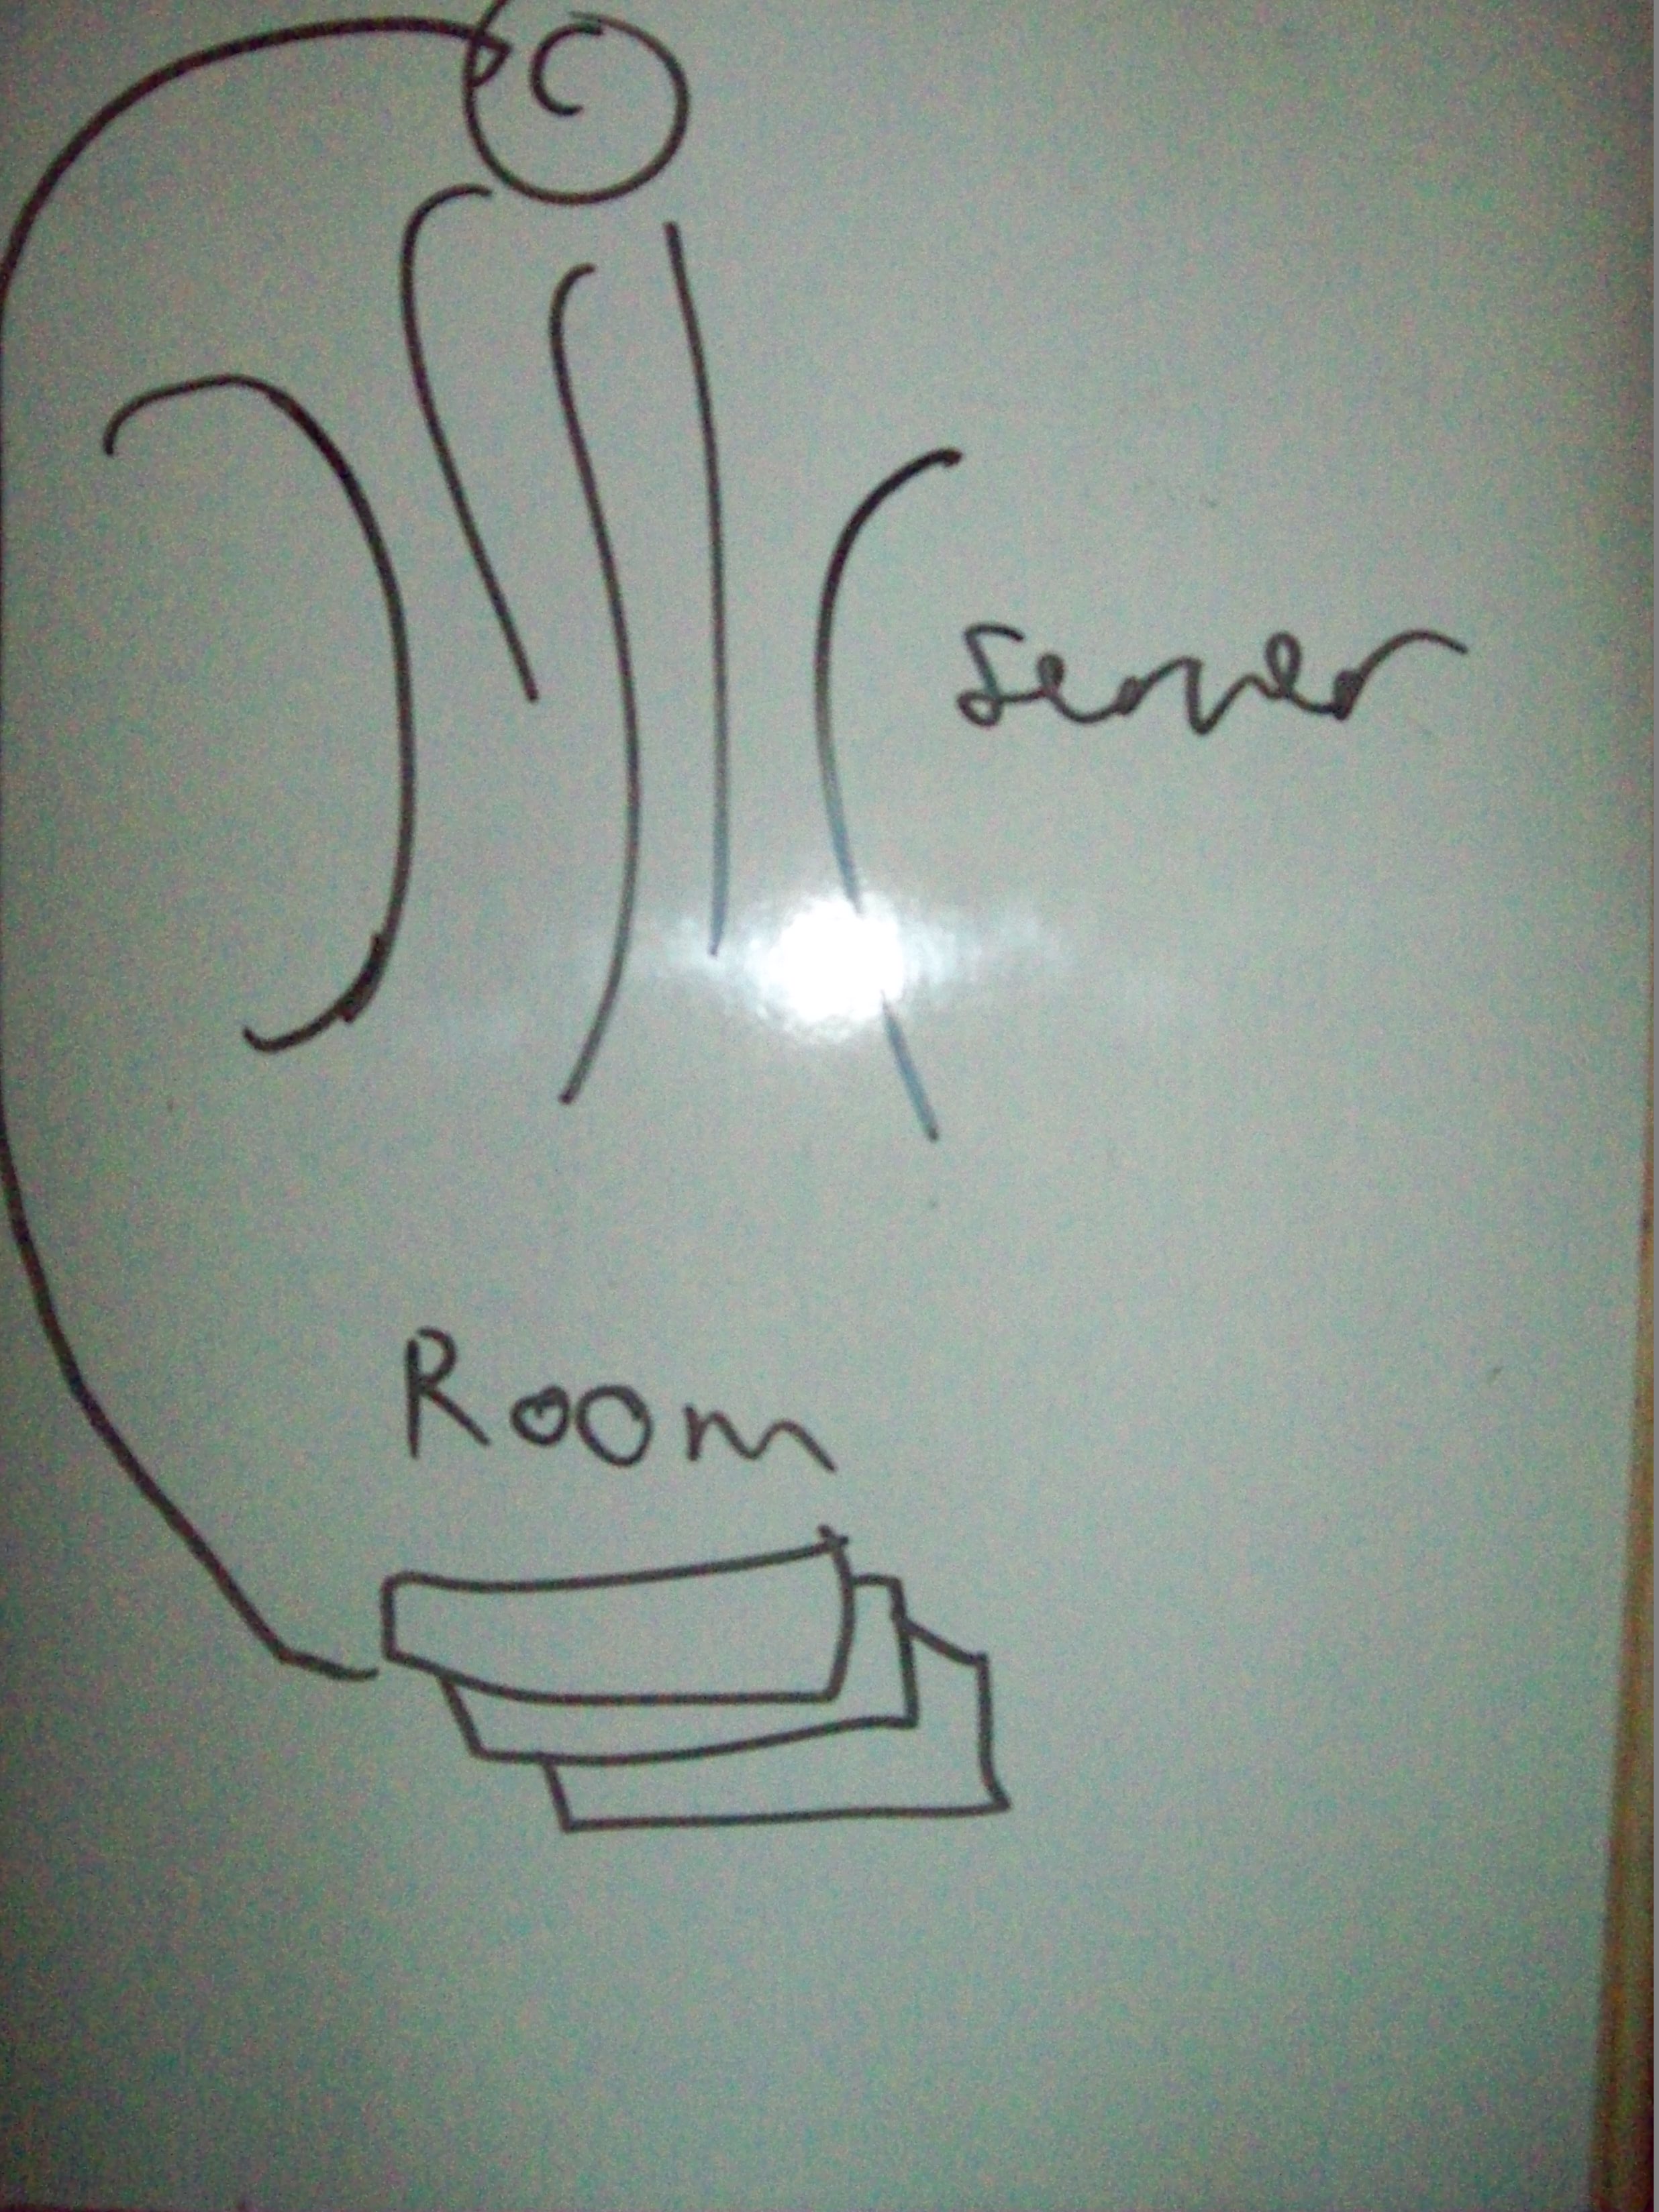 C
server
Room